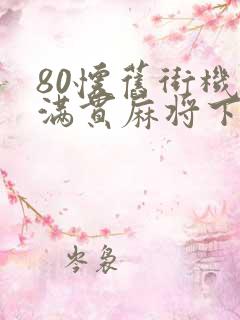 80懷舊街機
滿貫麻將下
岑裊